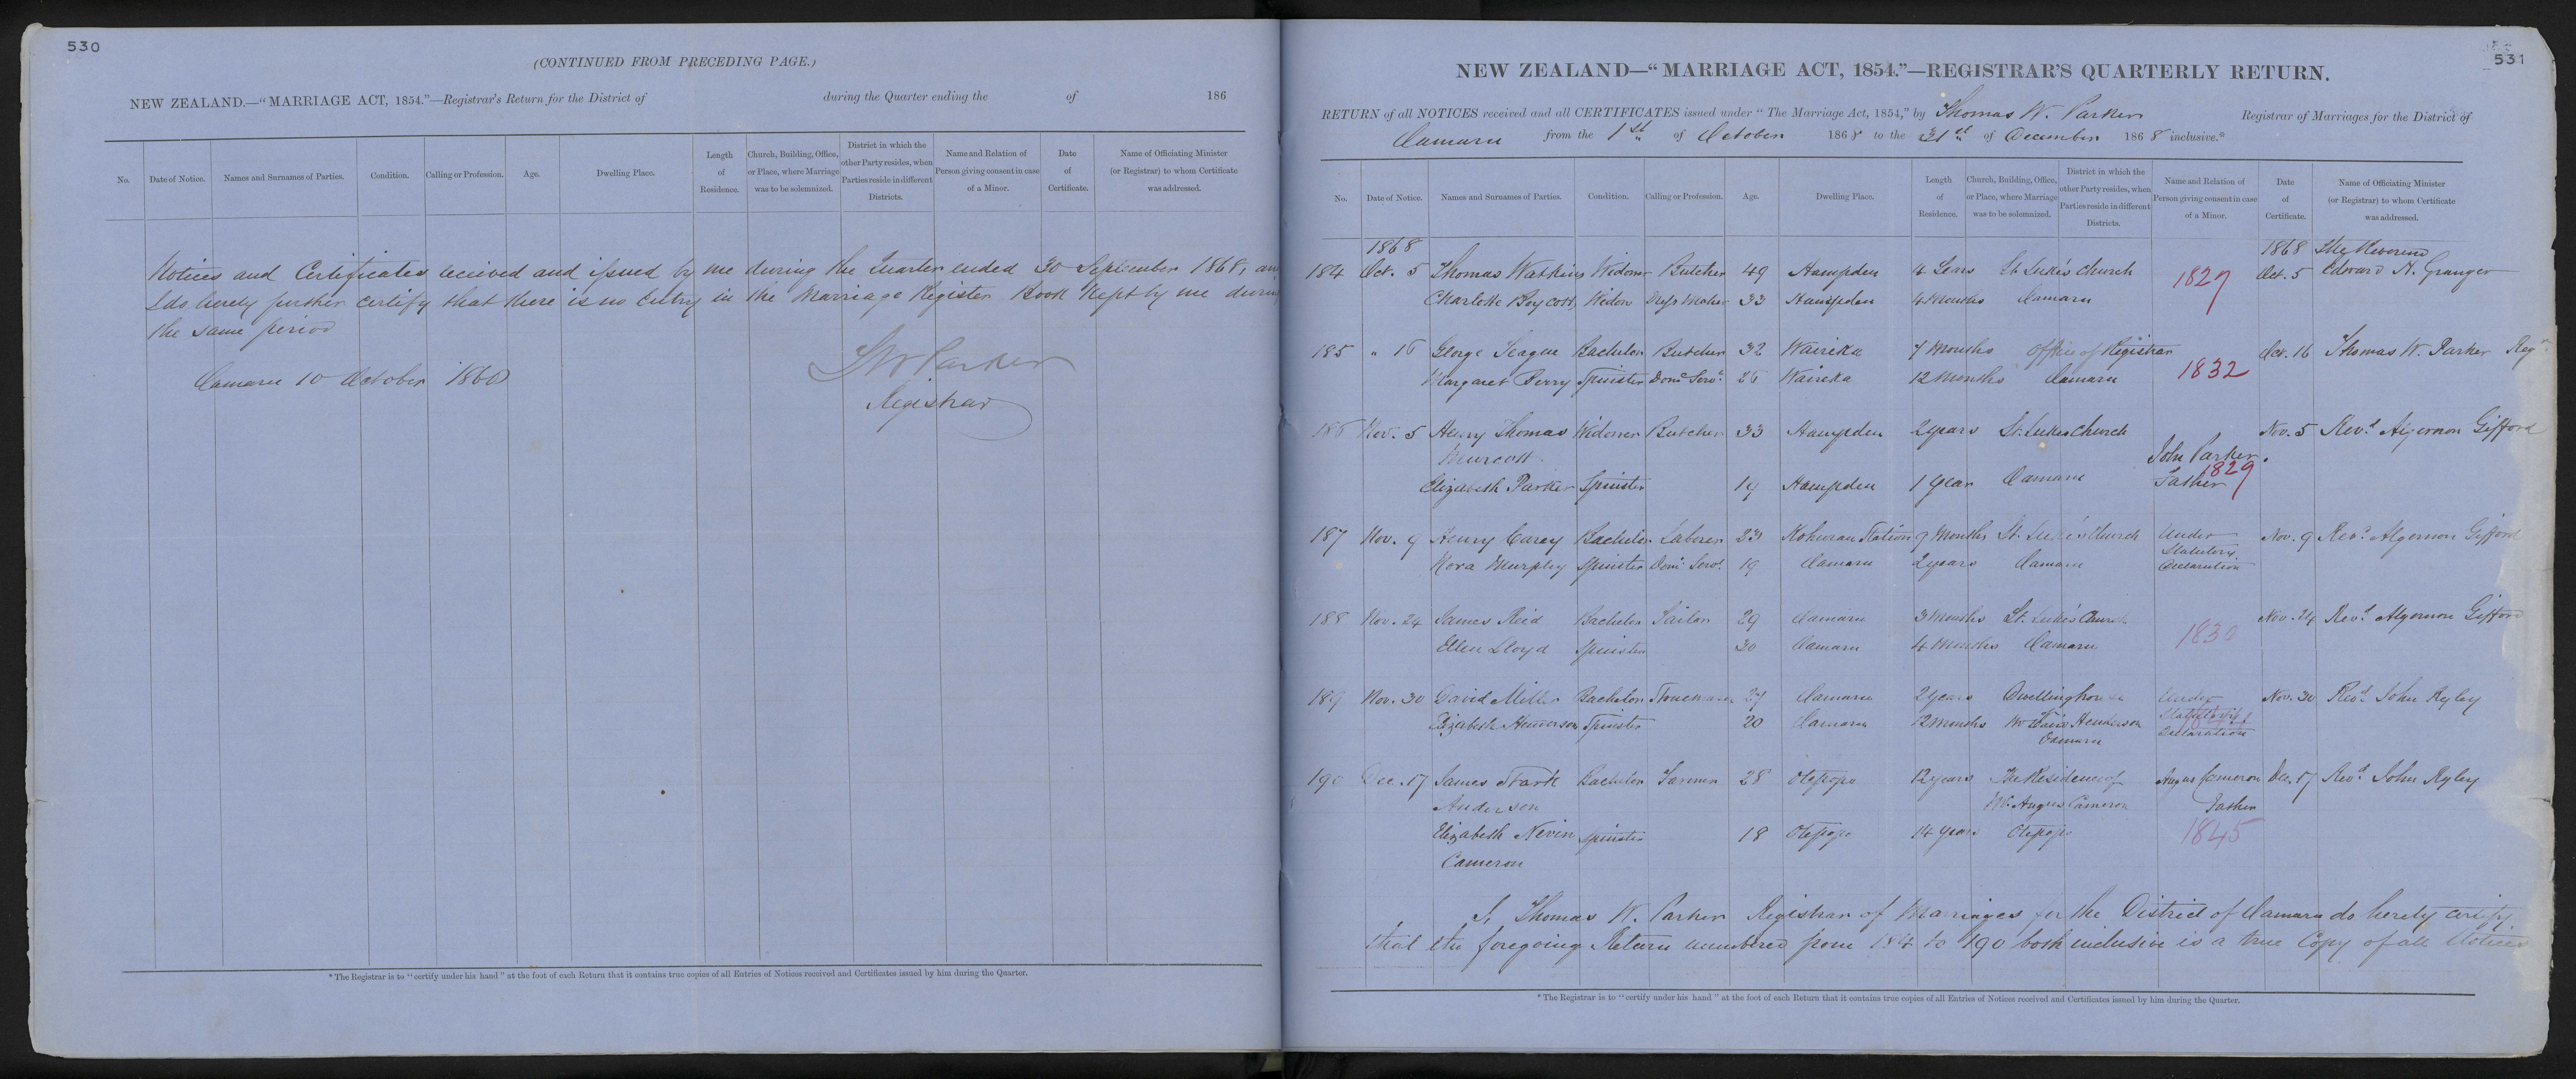 530
(CONTINUED FROM PRECEDING PAGE.)
NEW ZEALAND.—"MARRIAGE ACT, 1854."—Registrar's Return for the District of during the Quarter ending the of 186
No. Date of Notice. Names and Surnames of Parties. Condition. Calling or Profession. Age. Dwelling Place. Length of Residence. Church, Building, Office, or Place, where Marriage was to be solemnized. District in which the other Party resides, when Parties reside in different Districts. Name and Relation of Person giving consent in case of a Minor. Date of Certificate. Name of Officiating Minister (or Registrar) to whom Certificate was addressed.
Notices and Certificates received and issued by me during the Quarter ended 30 September 1868, an
I do hereby further certify that there is no Entry in the Marriage Register Book Kept by me durin
the same period
Oamaru 10 October 1868
TW Parker
Registrar
* The Registrar is to "certify under his hand" at the foot of each Return that it contains true copies of all Entries of Notices received and Certificates issued by him during the Quarter.
531
NEW ZEALAND—"MARRIAGE ACT, 1854."—REGISTRAR'S QUARTERLY RETURN.
RETURN of all NOTICES received and all CERTIFICATES issued under "The Marriage Act, 1854," by Thomas W. Parker Registrar of Marriages for the District of
Oamaru from the 1st of October 1868 to the 31st of December 1868 inclusive.*
No. Date of Notice. Names and Surnames of Parties. Condition. Calling or Profession. Age. Dwelling Place. Length of Residence. Church, Building, Office, or Place, where Marriage was to be solemnized. District in which the other Party resides, when Parties reside in different Districts. Name and Relation of Person giving consent in case of a Minor. Date of Certificate. Name of Officiating Minister (or Registrar) to whom Certificate was addressed.
1868 1868 The Reverend
184 Oct. 5 Thomas Watkins Widower Butcher 49 Hampden 4 Years St. Luke's Church 1827 Oct. 5 Edward H. Granger
Charlotte Boycott, Widow Dress Maker 33 Hampden 4 Months Oamaru
185 " 16 George Teague Bachelor Butcher 32 Waireka 7 Months Office of Registrar 1832 Oct. 16 Thomas W. Parker Regr
Margaret Perry Spinster Domc Servt 26 Waireka 12 Months Oamaru
186 Nov. 5 Henry Thomas Widower Butcher 33 Hampden 2 years St. Luke's Church Nov. 5 Revd Algernon Gifford
Murcott John Parker.
1829
Elizabeth Parker Spinster 19 Hampden 1 Year Oamaru Father
187 Nov. 9 Henry Carey Bachelor Laborer 23 Kohurau Station 9 Months St. Luke's Church Under Nov. 9 Revd Algernon Gifford
Nora Murphy Spinster Domc Servt 19 Oamaru 2 years Oamaru Statutory Declaration
188 Nov. 24 James Reid Bachelor Sailor 29 Oamaru 3 Months St. Luke's Church 1830 Nov. 24 Revd Algernon Gifford
Ellen Lloyd Spinster 30 Oamaru 4 Months Oamaru
189 Nov. 30 David Miller Bachelor 27 Oamaru 2 years Dwellinghouse Under Nov. 30 Revd John Ryley
Elizabeth Henderson Spinster 20 Oamaru 12 Months Mr David Henderson Statutory
Oamaru Declaration
190 Dec. 17 James Stark Bachelor Farmer 28 Otepopo 12 years The Residence of Angus Cameron Dec. 17 Revd John Ryley
Anderson Mr. Angus Cameron Father
Elizabeth Nevin Spinster 18 Otepopo 14 years Otepopo 1845
Cameron
I, Thomas W. Parker Registrar of Marriages for the District of Oamaru do hereby certify
that the foregoing Return numbered from 184 to 190 both inclusive is a true Copy of all Notices
* The Registrar is to "certify under his hand" at the foot of each Return that it contains true copies of all Entries of Notices received and Certificates issued by him during the Quarter.